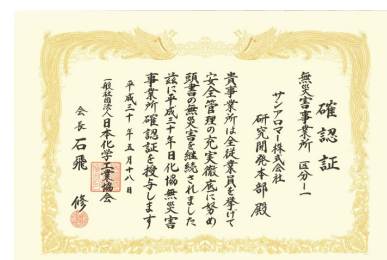 確認証
無災害事業所 区分ー1
サンアロマー株式会社
研究開発本部 殿
貴事業所は全従業員を挙げて
安全管理の充実徹底に努め
頭書の無災害を継続されました
茲に平成三十年日化協無災害
事業所確認証を授与します
平成三十年五月十八日
一般社団法人日本化学工業協会
会長 石飛 修